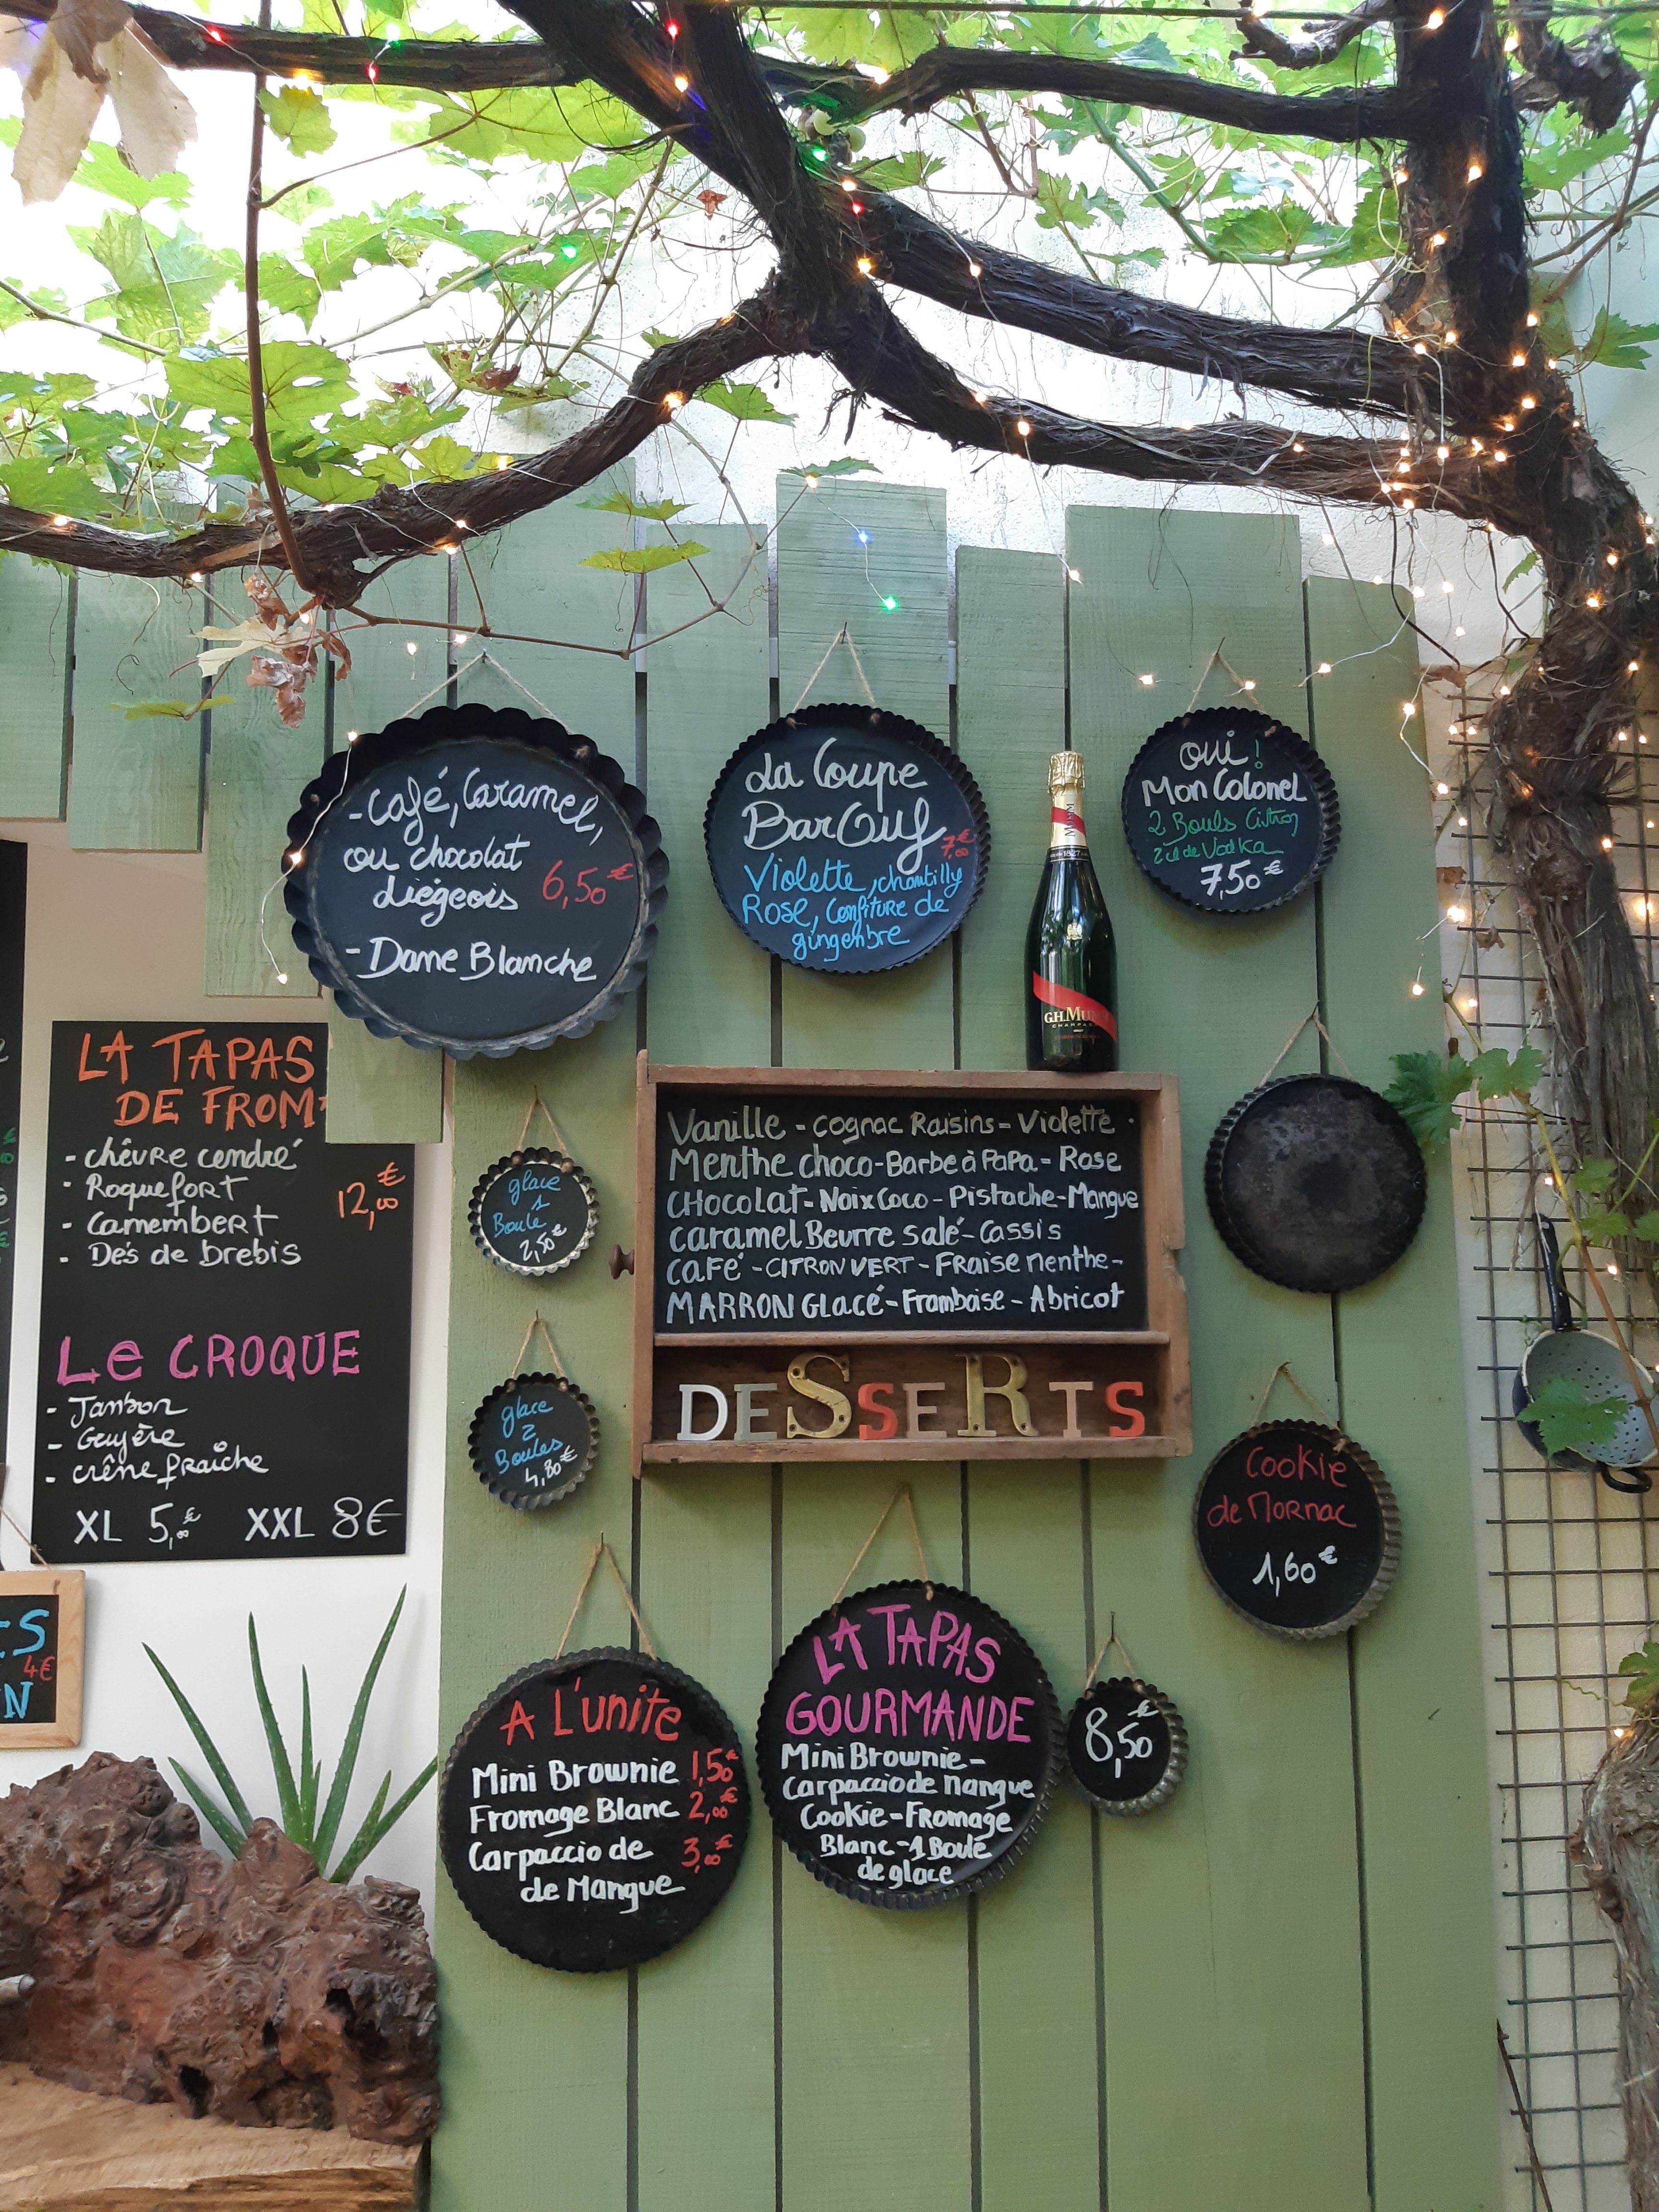 - Café, Caramel,
ou chocolat
Liégeois 6,50€
- Dame Blanche
La Coupe
BarOuf
7,00€
Violette, chantilly
Rose, Confiture de
gingenbre
oui !
Mon Colonel
2 Bouls Citron
2 cl de Vodka
7,50€
MUMM
1827
G.H.MUM
CHAMPAGNE
LA TAPAS
DE FROM
- chêvre cendré
- Roquefort
- Camembert
- Dés de brebis
12,00€
Le CROQUE
- Jambon
- Gruyère
- crême fraîche
XL 5,00€ XXL 8€
S
4€
N
glace
1
Boule
2,50€
glace
2
Boules
4,80€
Vanille - cognac Raisins - Violette -
Menthe choco - Barbe à PaPa - Rose
CHocolat - Noix Coco - Pistache - Mangue
caramel Beurre salé - Cassis
CaFé - CITRON VERT - FRaise menthe -
MARRON Glacé - Framboise - Abricot
DESSERTS
Cookie
de MORNAC
1,60€
A L'unite
Mini Brownie 1,50€
Fromage Blanc 2,00€
Carpaccio de 3,00€
de Mangue
LA TAPAS
GOURMANDE
Mini Brownie -
Carpaccio de Mangue
Cookie - Fromage
Blanc - 1 Boule
de glace
8,50€